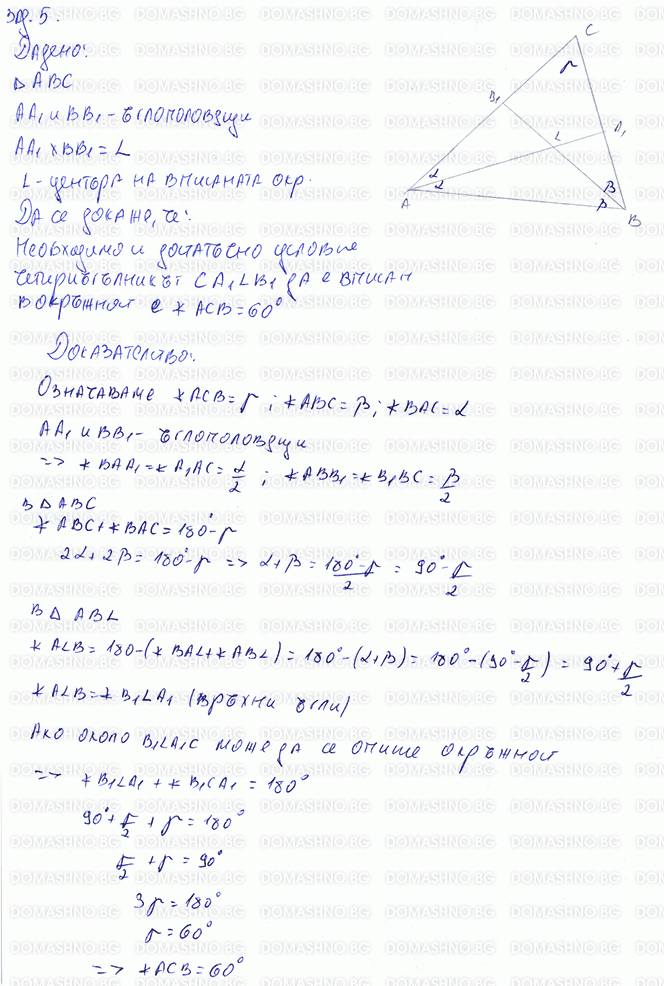 Зад. 5.
Дадено:
△ ABC
AA₁ и BB₁ - ъглополовящи
AA₁ × BB₁ = L
L - центъра на вписаната окр.
Да се докаже, че:
Необходимо и достатъчно условие
четириъгълникът CA₁LB₁ да е вписан
в окръжност е ∢ ACB = 60°
C
γ
B₁
A₁
L
α
α
A
β
β
B
Доказателство:
Означаваме ∢ACB = γ ; ∢ABC = β ; ∢BAC = α
AA₁ и BB₁ - ъглополовящи
=> ∢BAA₁ = ∢A₁AC = α/2 ; ∢ABB₁ = ∢B₁BC = β/2
В △ ABC
∢ABC + ∢BAC = 180° - γ
2α + 2β = 180° - γ => α + β = (180° - γ)/2 = 90° - γ/2
В △ ABL
∢ALB = 180 - (∢BAL + ∢ABL) = 180° - (α + β) = 180° - (90° - γ/2) = 90° + γ/2
∢ALB = ∢B₁LA₁ (връхни ъгли)
Ако около B₁LA₁C може да се опише окръжност
=> ∢B₁LA₁ + ∢B₁CA₁ = 180°
90° + γ/2 + γ = 180°
γ/2 + γ = 90°
3γ = 180°
γ = 60°
=> ∢ACB = 60°